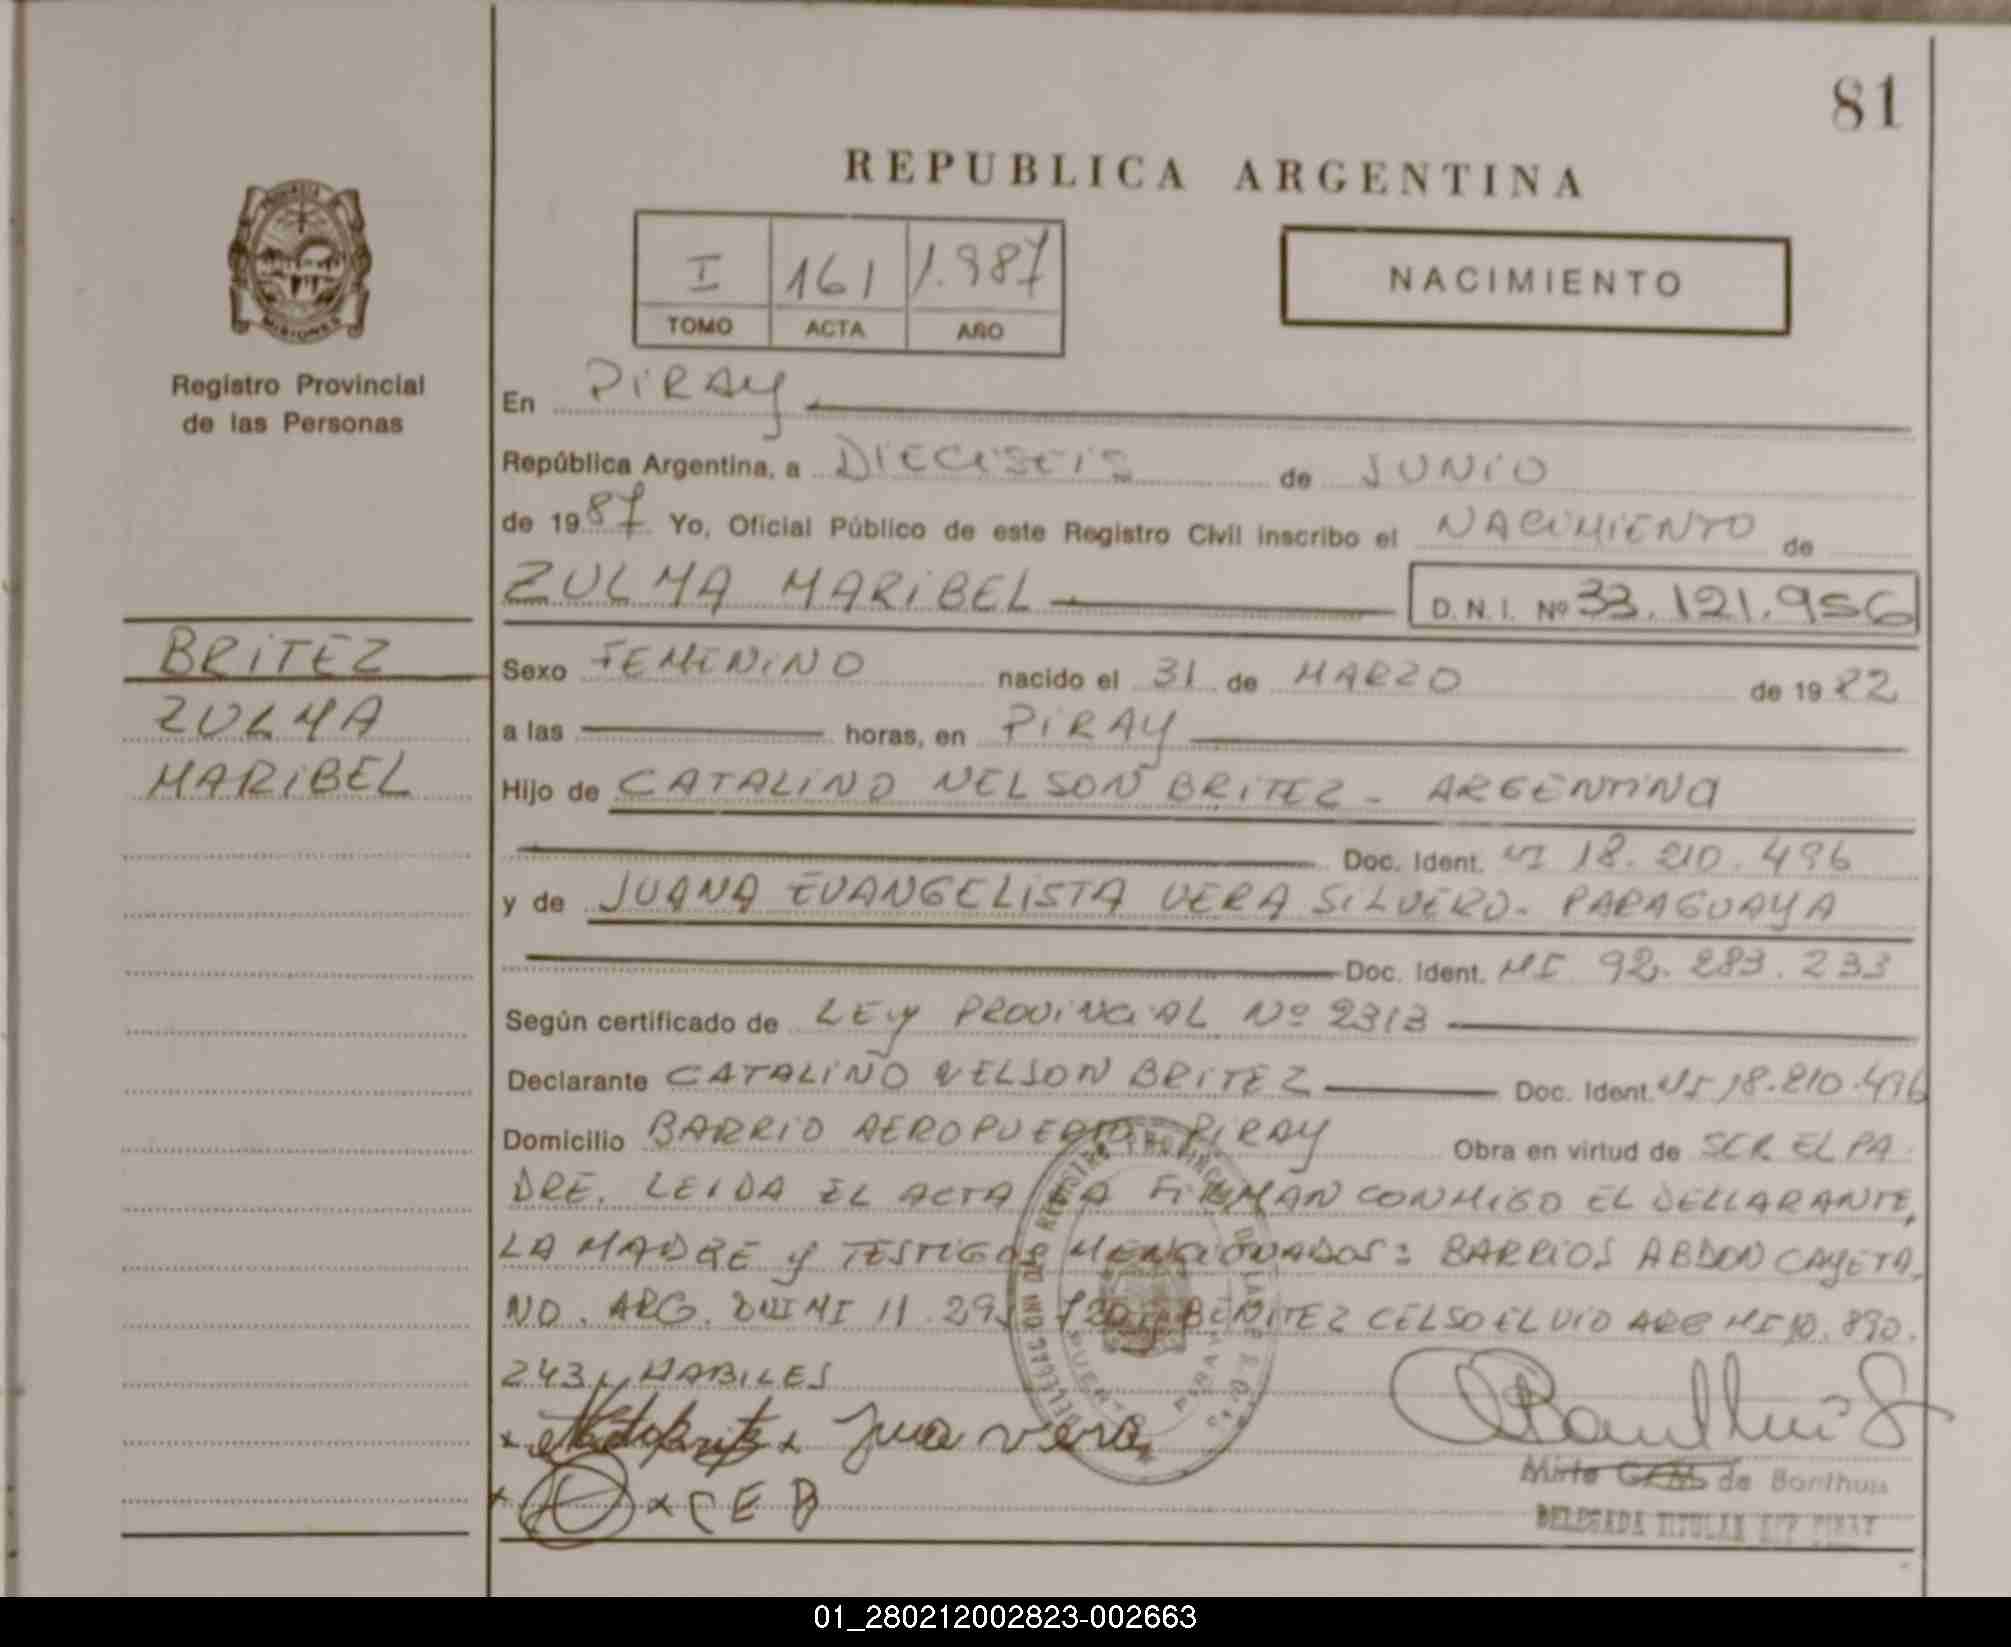 81
REPUBLICA ARGENTINA
I 161 1.987
TOMO ACTA AÑO
NACIMIENTO
MISIONES
Registro Provincial
de las Personas
En PIRAY
República Argentina, a DIECISEIS de JUNIO
de 1987 Yo, Oficial Público de este Registro Civil inscribo el NACIMIENTO de
ZULMA MARIBEL D.N.I. Nº 33.121.956
BRITEZ
ZULMA
MARIBEL
Sexo FEMENINO nacido el 31 de MARZO de 19
a las horas, en PIRAY
Hijo de CATALINO NELSON BRITEZ - ARGENTINA
Doc. Ident. MI 18.210.496
y de JUANA EVANGELISTA VERA SILVERO - PARAGUAYA
Doc. Ident. MI 92.283.233
Según certificado de LEY PROVINCIAL Nº 2313
Declarante CATALINO NELSON BRITEZ Doc. Ident. MI 18.210.496
Domicilio BARRIO AEROPUERTO PIRAY Obra en virtud de SER EL PA
DRE. LEIDA EL ACTA LA FIRMAN CONMIGO EL DECLARANTE,
LA MADRE y TESTIGOS MENCIONADOS: BARRIOS ABDON CAYETA
NO. ARG. MI 11.295 BENITEZ CELSO ELVIO ARG MI 10.890.
243, HABILES
x x Jua vera
x x C E B
Mirta de Banthuis
DELEGADA TITULAR PIRAY
01_280212002823-002663